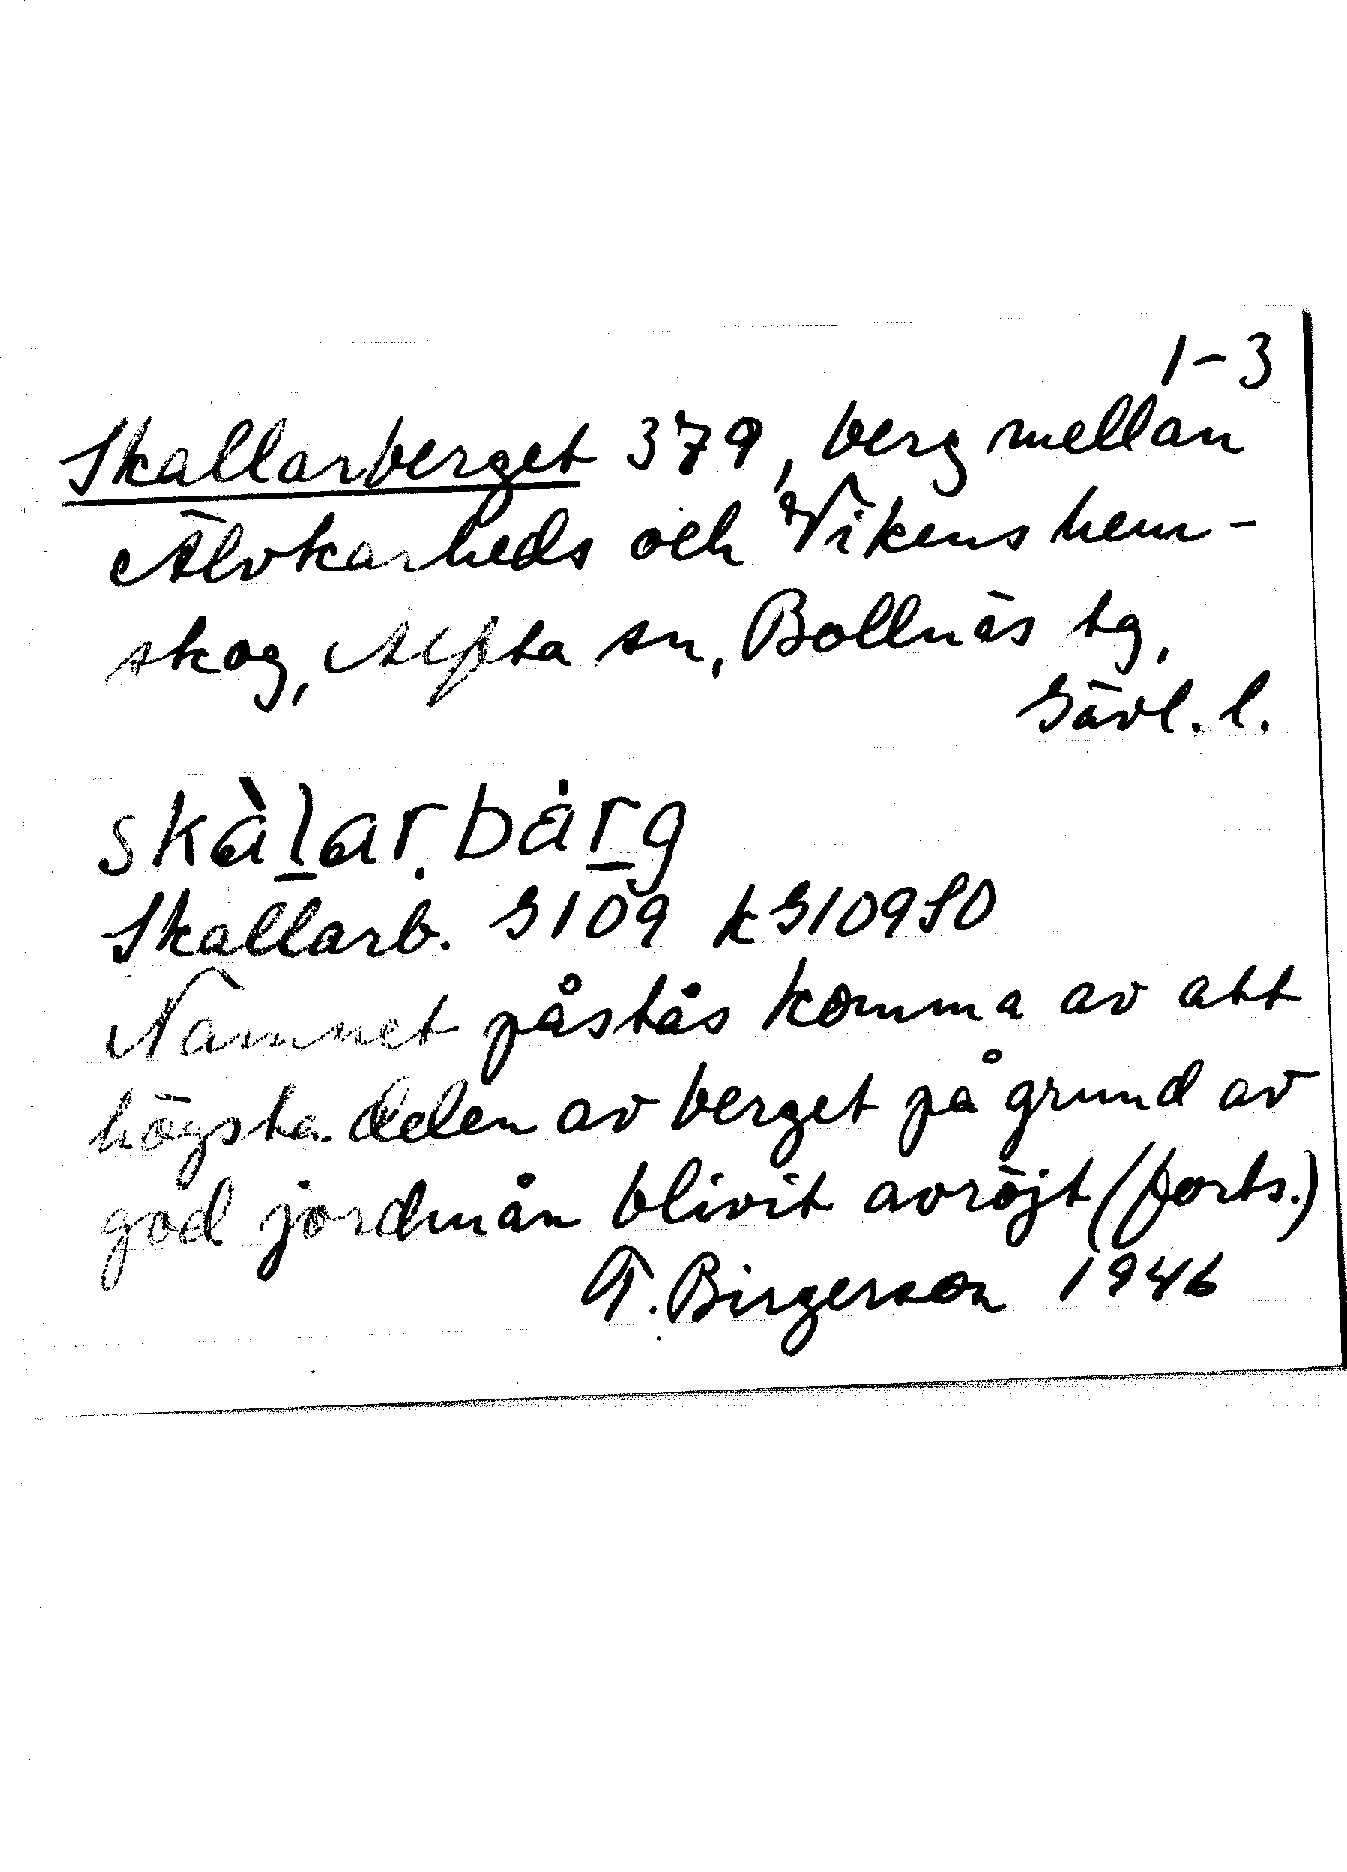 1-3
Skallarberget 379, berg mellan
Älvkarheds och Vikens hem-
skog, Alfta sn, Bollnäs tg,
Gävl. l.
skàlar.bȧrg
Skallarb. G109 kG109SO
Namnet påstås komma av att
högsta delen av berget på grund av
god jordmån blivit avröjt (forts.)
T. Birgerson 1946